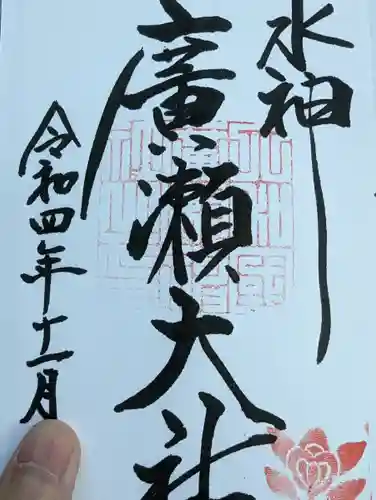 水神
廣瀬大社
令和四年十一月